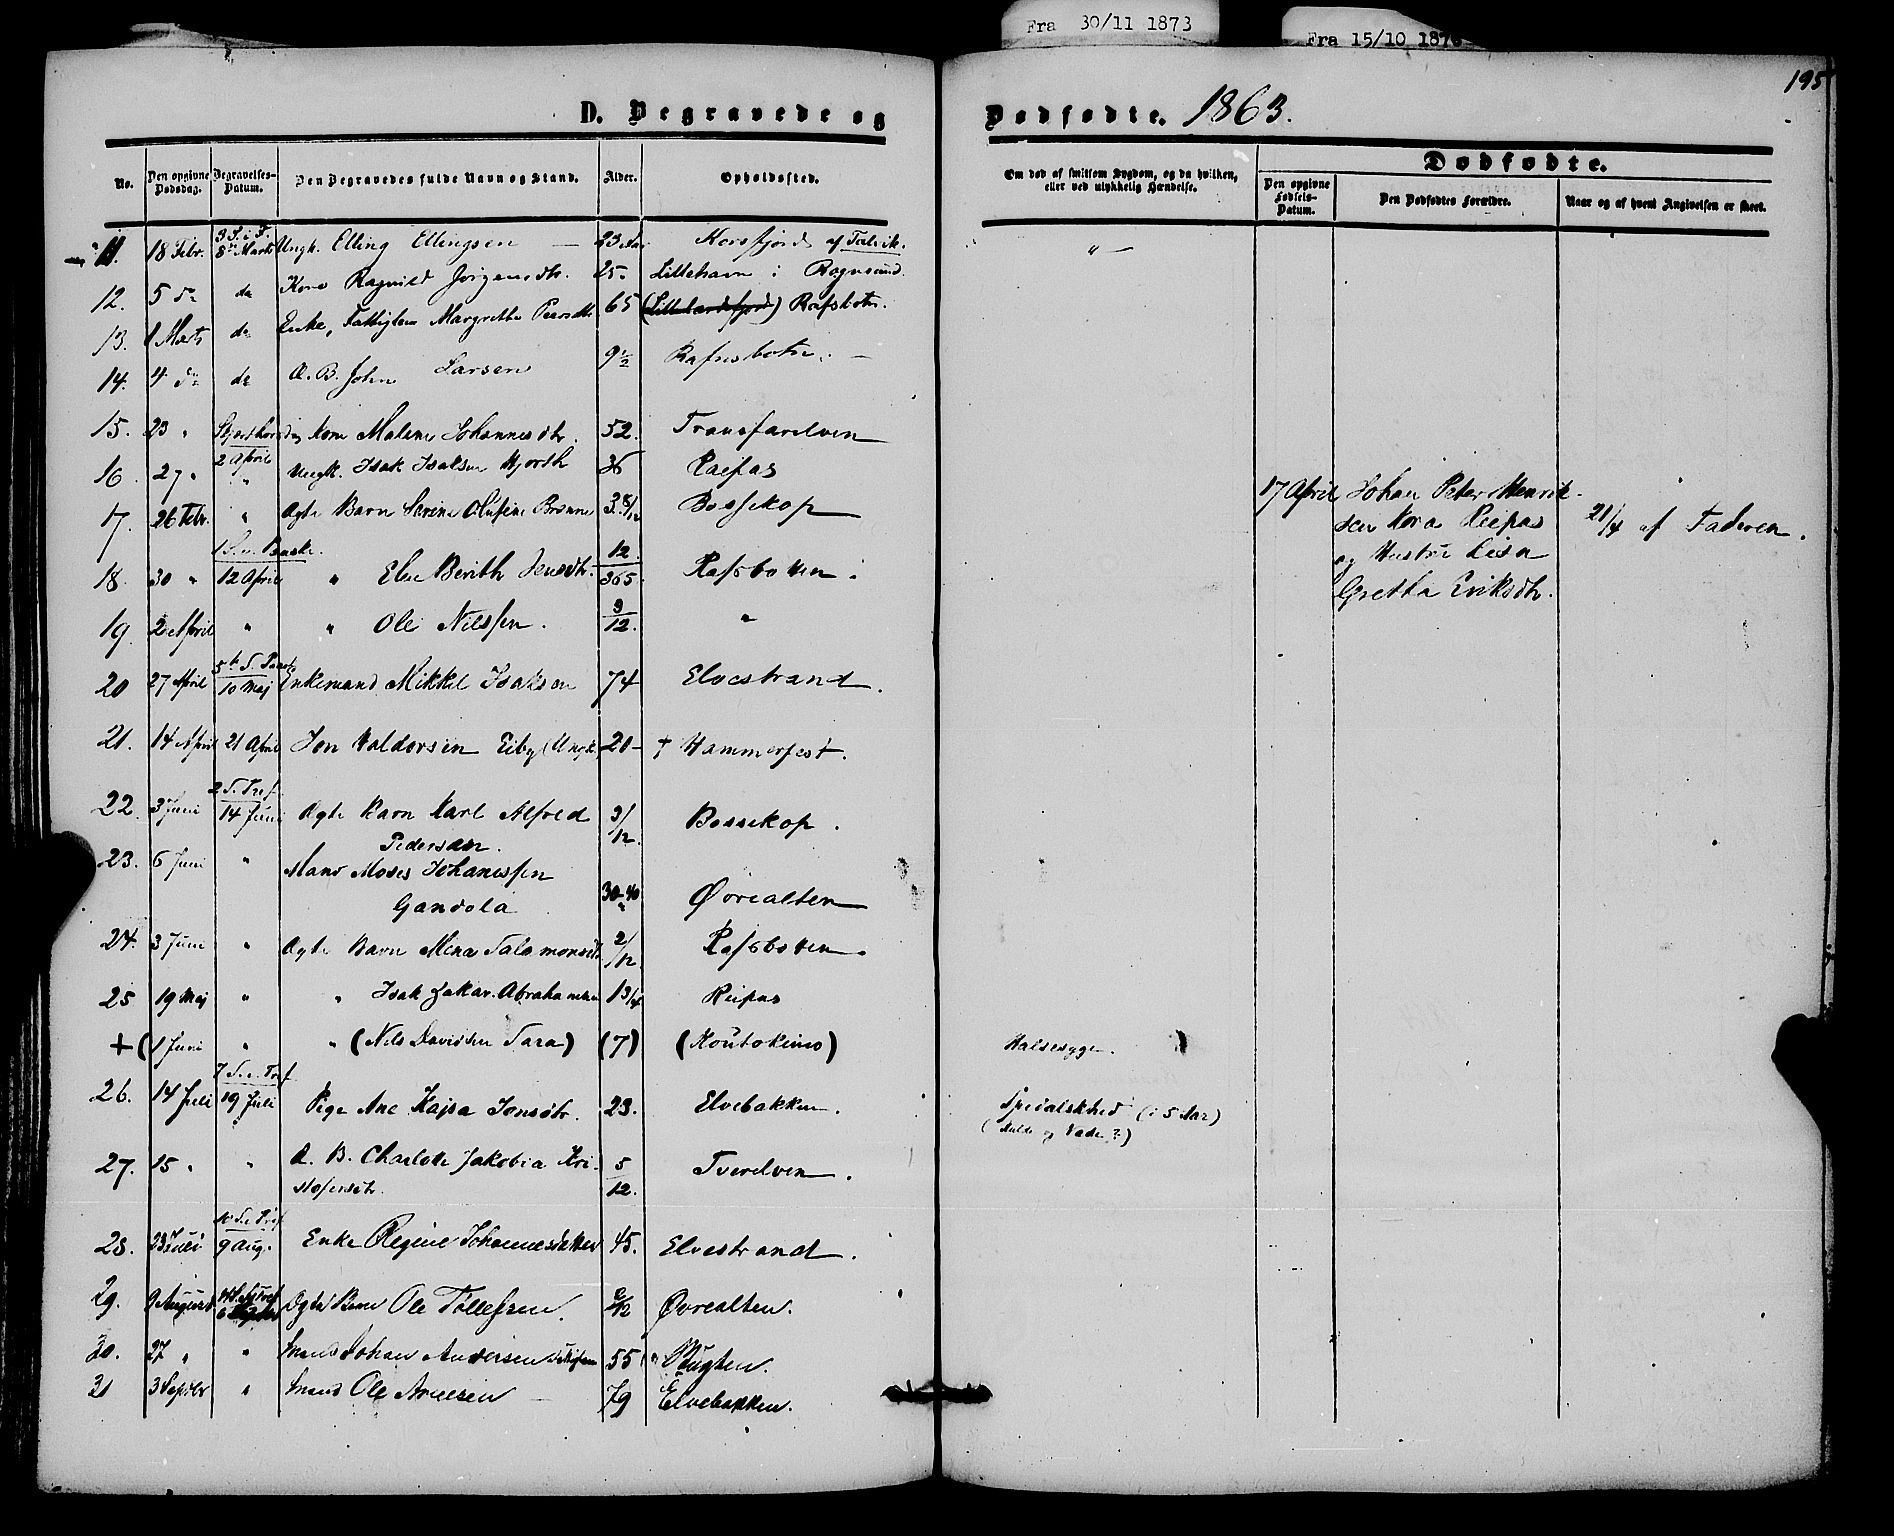 Fra 30/11 1873
Fra 15/10 187
195
D. Begravede og
Dødfødte. 1863.
No.
Den opgivne Dødsdag.
Begravelses-Datum.
Den Begravedes fulde Navn og Stand.
Alder.
Opholdssted.
Om død af smitsom Sygdom, og da hvilken, eller ved ulykkelig Hændelse.
Dødfødte.
Den opgivne Fødsels-Datum.
Den Dødfødtes Forældre.
Naar og af hvem Angivelsen er skeet.
3 S. i F.
11. 18 Febr. 8de Marts Ungk. Elling Ellingsen — 23 Aar Korsfjord af Talvik. " —
12. 5 do do Kone Ragnild Jørgensdtr. 25 Lillehavn i Rognsund.
13. 1 Marts do Enke, Fattiglem Margrethe Peersdtr 65 (Lillelærdsfjord) Rafsbotn.
14. 4 do do Æ. B. John Larsen 9½ Rafnsbotn. —
15. 23 " Skjærthorsdag Kone Malene Johannesdtr. 52. Tranfarelven
2 April
16. 27 " " Ungk. Isak Isaksen Hjorth 36 Raipas
17. 26 Febr. " Ægte Barn Serine Olufine Brünne 3 8/12 Bossekop
1 S. e. Paaske.
18. 30 " 12 April " Elen Berith Jensdtr. 12/365. Rafsbotten.
19. 2 April " " Ole Nilssen. 9/12. "
17 April Johan Peter Henriksen Kora Reipas
og Hustru Lisa
Gretha Eriksdtr.
21/4 af Faderen.
5te S. Paaske
20 27 April 10 Maj Enkemand Mikkel Isaksen 74 Elvestrand.
21. 14 April 21 April Jon Haldorsen Eiby (Ungk) 20 – † Hammerfest.
2 S. Tref.
22. 3 Juni 14 Juni Ægte Barn Karl Alfred 3/12. Bossekop.
Pedersen.
23. 6 Juni " Mand Moses Johanessen
Gandola 30–40 Øvrealten
24. 3 Juni " Ægte Barn Mina Salamonsdtr 2/12. Rafsbotten.
25 19 Maj " " Isak Zakar. Abrahamsen 1 3/4 Reipas
+ (1 Juni " " (Nils Davidsen Sara) (7) (Koutokeino) Halsesyge.
7 S. e. Tref
26. 14 Juli 19 Juli Pige Ane Kajsa Jonsdtr. 23. Elvebakken. Spedalskhed (i 5 Aar)
(Kulde og Væde?)
27. 15 " " Æ. B. Charlotte Jakobia Kri- 5/12. Tverelven.
stofersdtr.
10 S. e. Tref
28. 23 Juli 9 Aug. Enke Regine Johannesdatter 45. Elvestrand.
29. 9 August Ægte Barn Ole Tøllefsen. Øvrealten.
30. 27 " " Mand Johan Andersen 55 Bugten.
31 3 Septbr " Mand Ole Andersen — 79 Elvebakken.